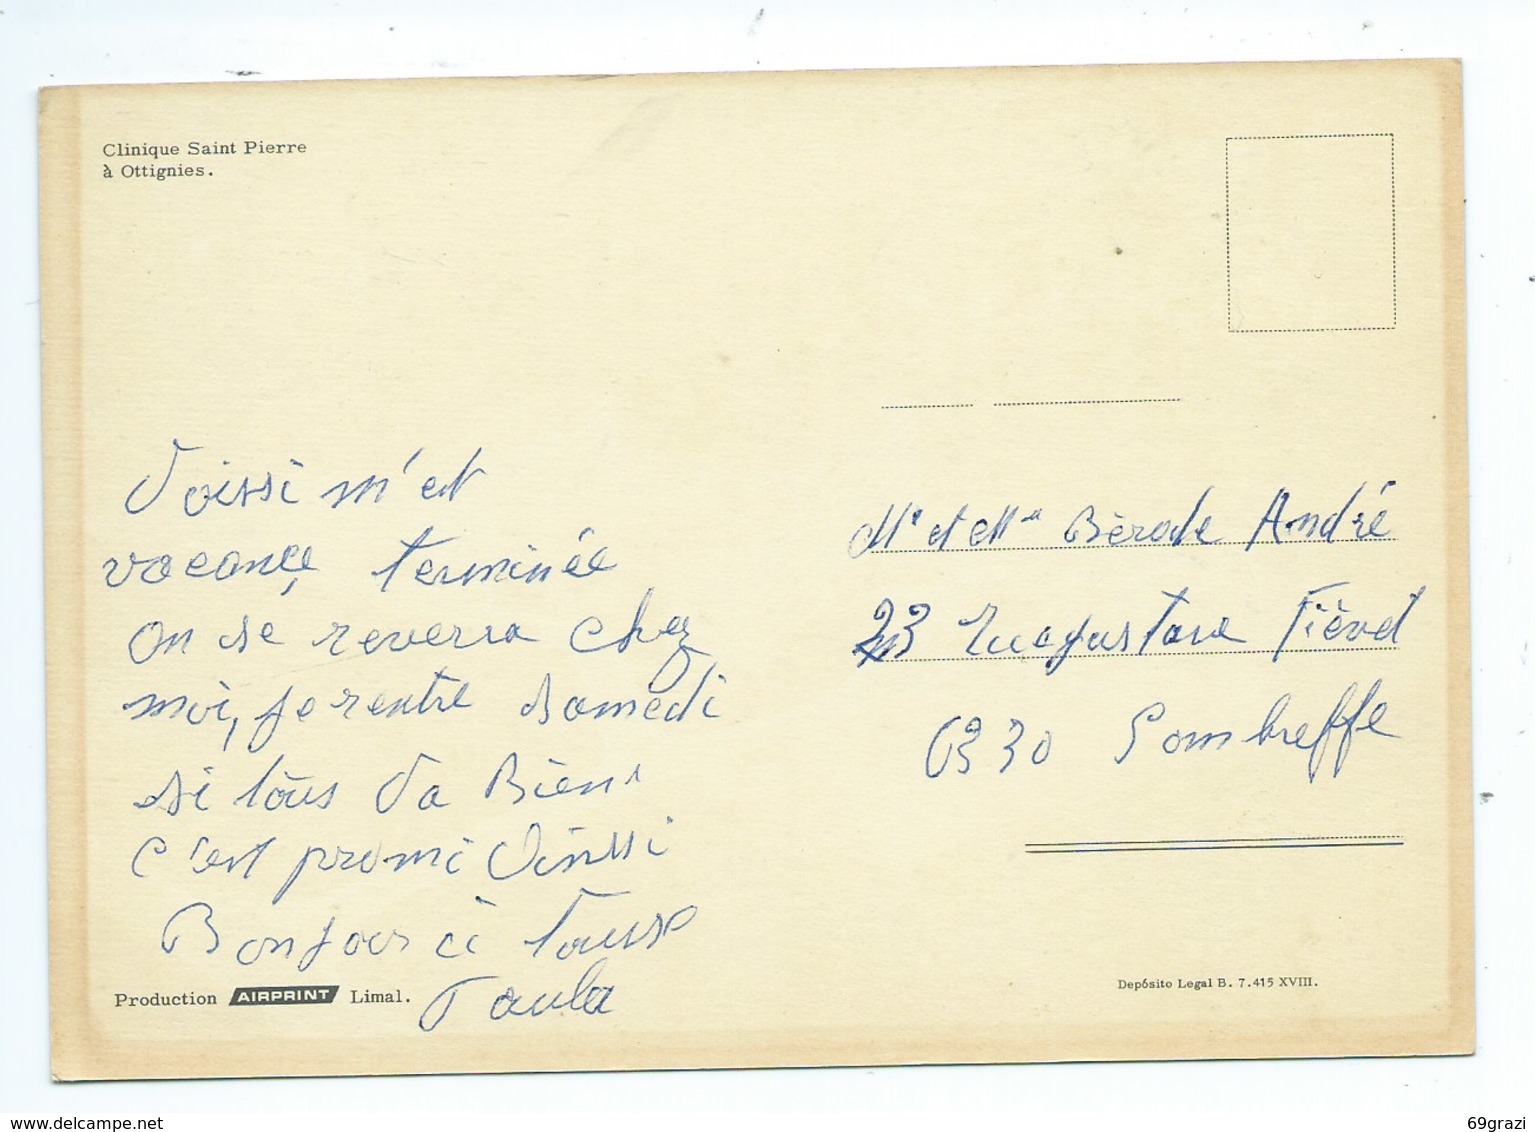 Clinique Saint Pierre
à Ottignies.
Voissi m'est
vacançe terminée
on se reverra chez
moi, je rentre samedi
si tous va Bien
c'est promi Vinssi
Bonjour à tous
Paula
Mr et Mme Bèrode André
23 Fièvet
6330 Sombreffe
Production AIRPRINT Limal.
Depósito Legal B. 7.415 XVIII.
delcampe.net
69grazi